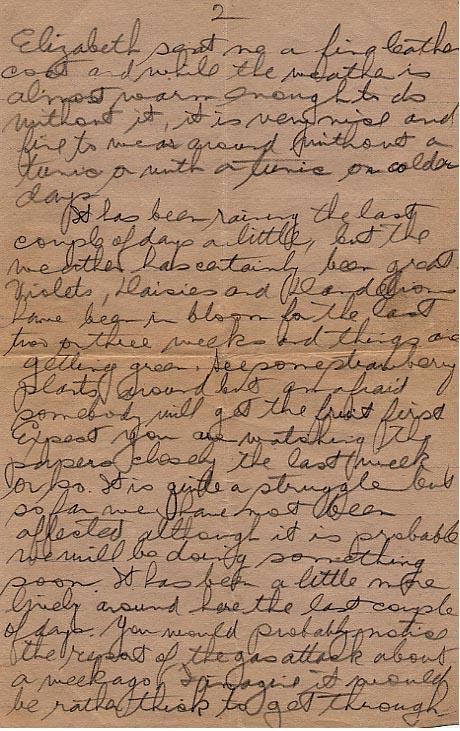 2
Elizabeth sent me a fine leather
coat and while the weather is
almost warm enough to do
without it, it is very nice and
fine to wear around without a
tunic or with a tunic on colder
days
It has been raining the last
couple of days a little, but the
weather has certainly been great.
Violets, Daisies and Dandelions
have been in bloom for the last
two or three weeks and things are
getting green. See some strawberry
plants around but am afraid
somebody will get the fruit first
Expect you are watching the
papers closely the last week
or so. It is quite a struggle but
so far we have not been
affected although it is probable
we will be doing something
soon. It has been a little more
lively around here the last couple
of days. You would probably notice
the report of the gas attack about
a week ago. I imagine it would
be rather thick to get through